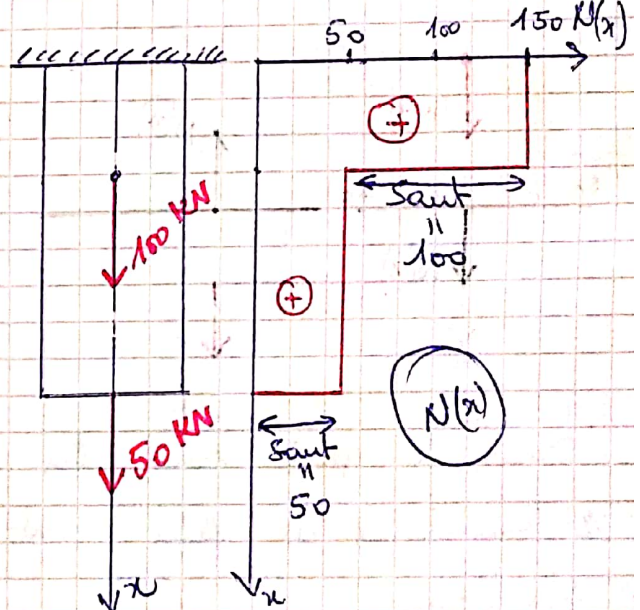 50 100 150 N(x)
+
Saut
=
100
100 KN
+
N(x)
50 KN
Saut
=
50
x x